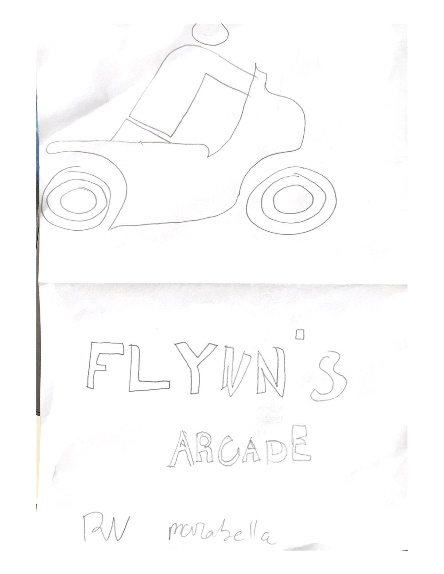 FLYNN'S
ARCADE
RN marabella